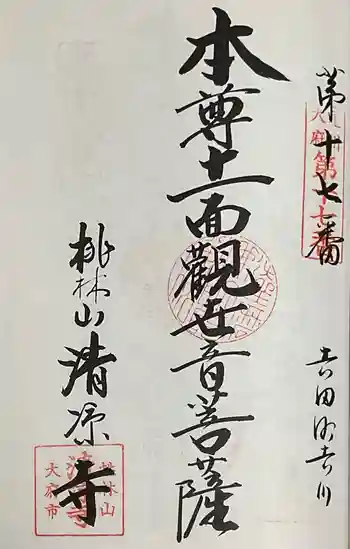 第十七番
第十七番
吉田
本尊十一面觀世音菩薩
桃林山清凉寺
桃林山
清凉寺
大府市